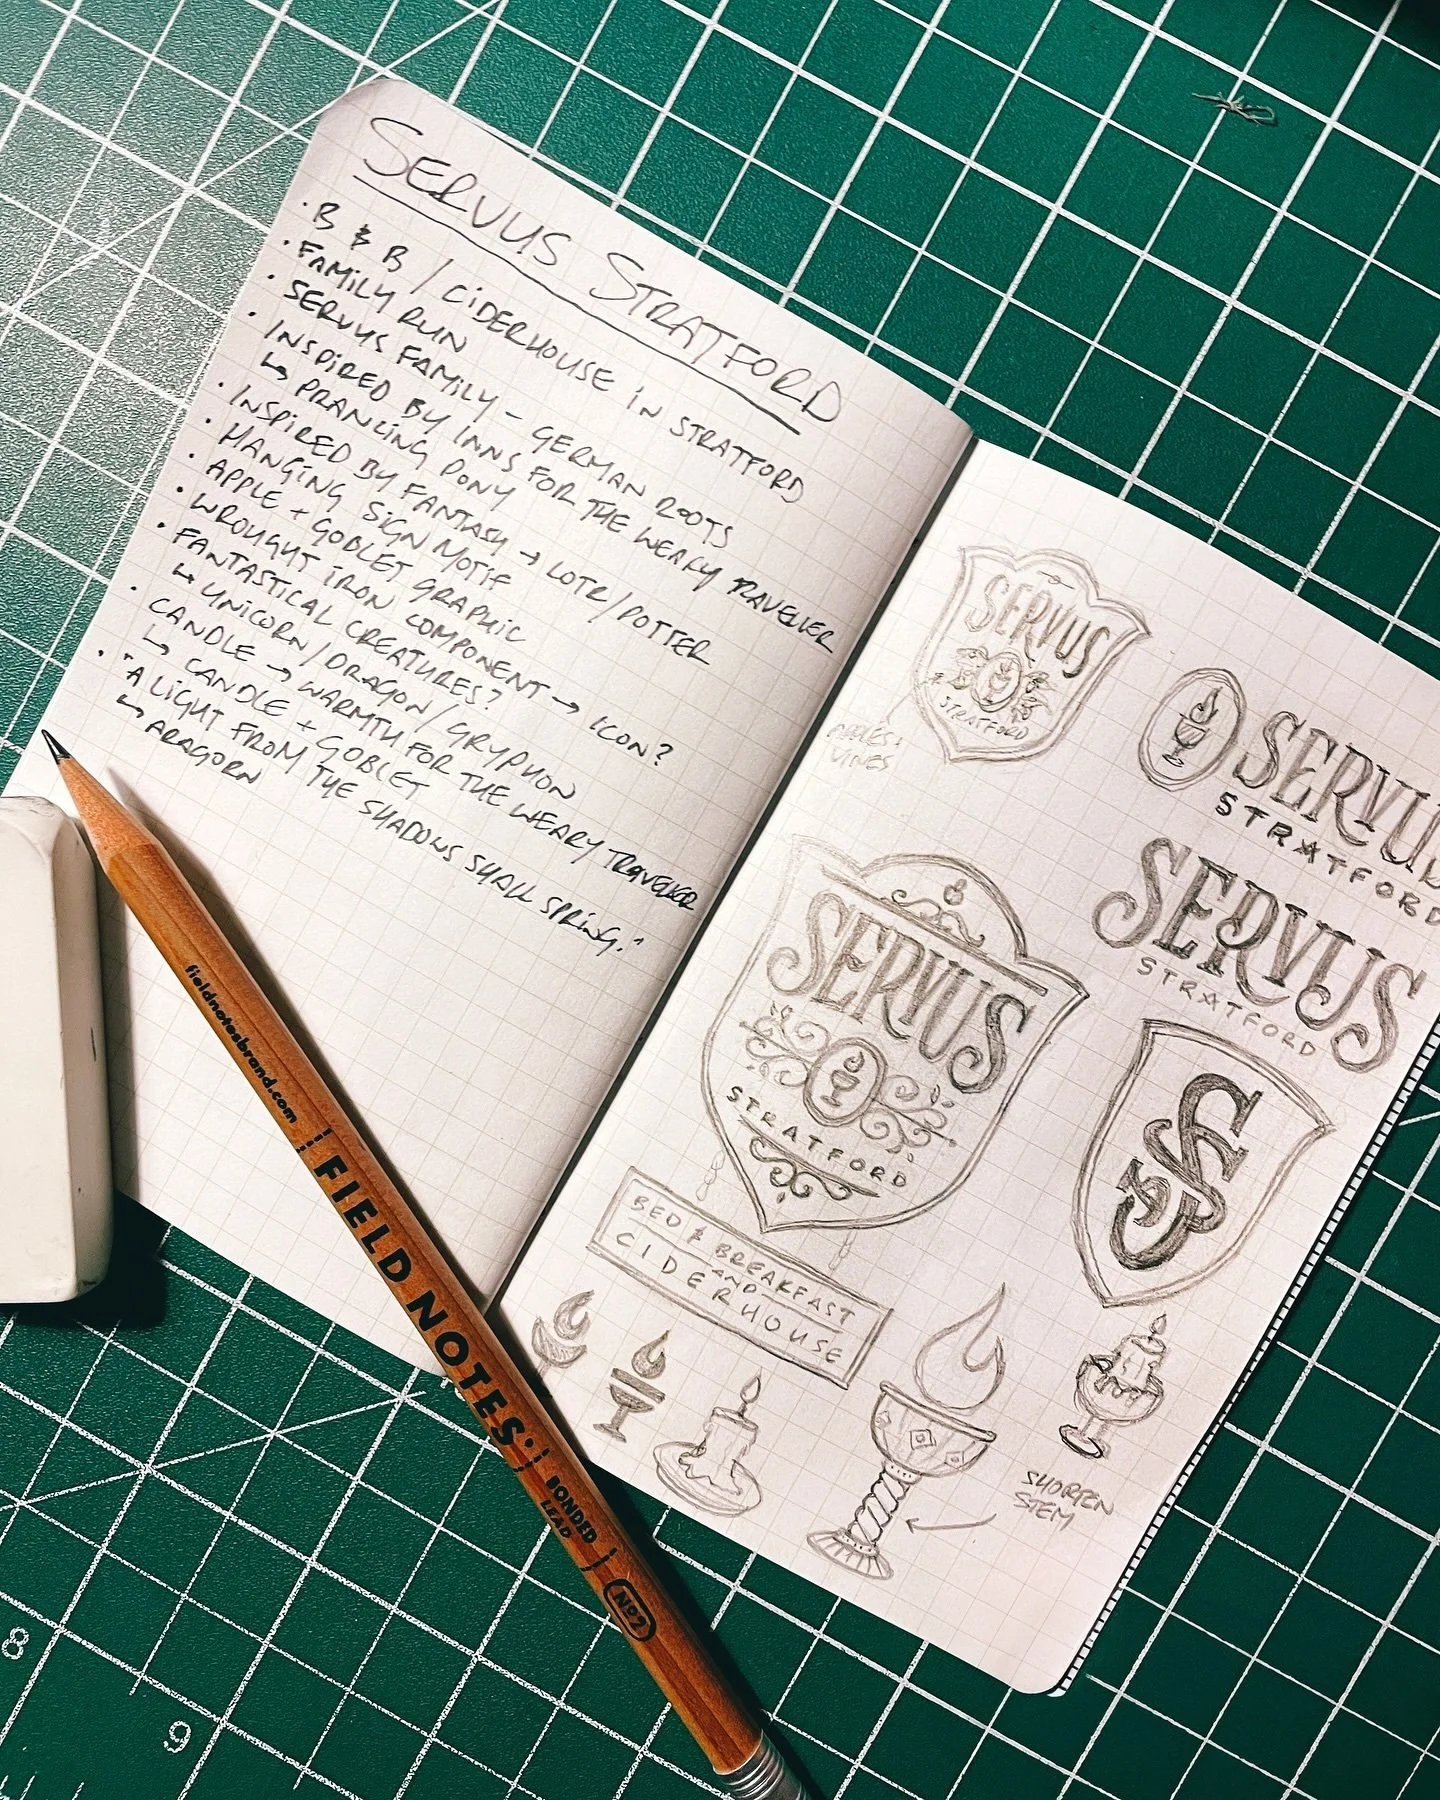 SERVUS STRATFORD
· B & B / CIDERHOUSE IN STRATFORD
· FAMILY RUN
· SERVUS FAMILY - GERMAN ROOTS
· INSPIRED BY INNS FOR THE WEARY TRAVELLER
↳ PRANCING PONY
· INSPIRED BY FANTASY → LOTR/POTTER
· HANGING SIGN MOTIF
· APPLE + GOBLET GRAPHIC
· WROUGHT IRON COMPONENT → ICON?
· FANTASTICAL CREATURES?
↳ UNICORN/DRAGON/GRYPHON
· CANDLE → WARMTH FOR THE WEARY TRAVELLER
↳ CANDLE + GOBLET
· "A LIGHT FROM THE SHADOWS SHALL SPRING."
↳ ARAGORN
SERVUS
STRATFORD
APPLES +
VINES
SERVUS
STRATFORD
SERVUS
STRATFORD
SERVUS
STRATFORD
BED & BREAKFAST
AND
CIDERHOUSE
SS
SHORTEN
STEM
fieldnotesbrand.com
FIELD NOTES
BONDED
LEAD
No2
8
9